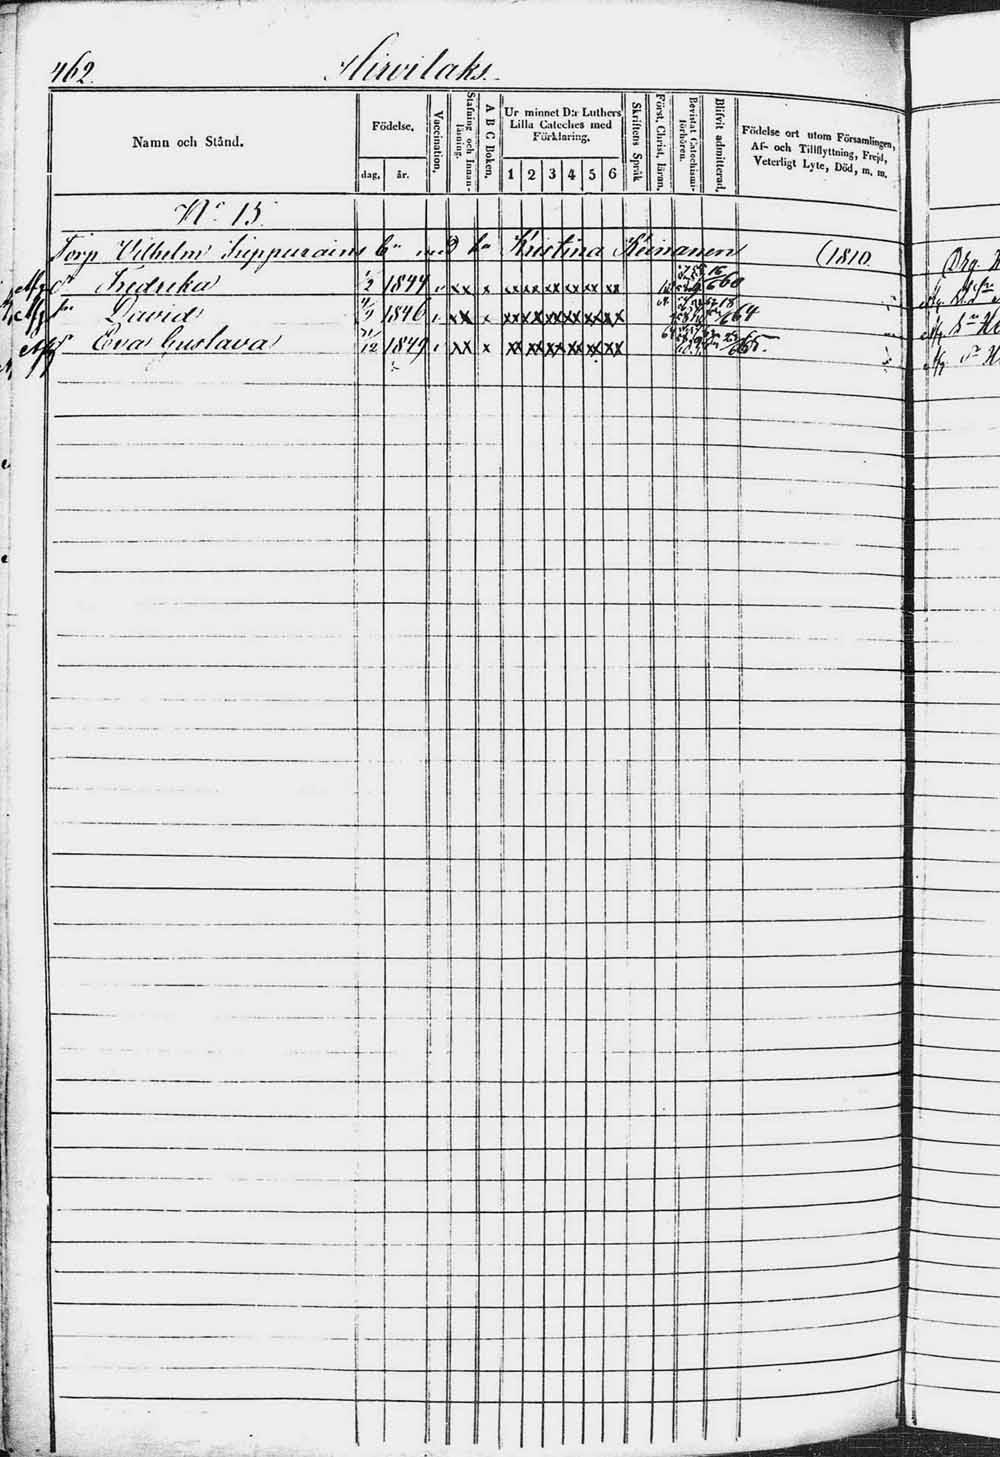 462.
Hirvilaks.
Namn och Stånd.
Födelse.
dag.
år.
Vaccination.
Stafning och Innanläsning.
A B C Boken.
Ur minnet D:r Luthers Lilla Cateches med Förklaring.
1 2 3 4 5 6
Skriftens Språk
Först. Christ. läran.
Bevistat Catechismi-förhören.
Blifvit admitterad.
Födelse ort utom Församlingen,
Af- och Tillflyttning, Frejd,
Veterligt Lyte, Död, m. m.
No 15
Torp Vilhelm med Kristina Keinanen (1810.
Fredrika 1844 xx x xx xx xx xx xx xx 16/6 60
David 1846 xx x xx xx xx xx xx xx 18/6 64
Eva Gustava /12 1849 xx x xx xx xx xx xx xx 65.